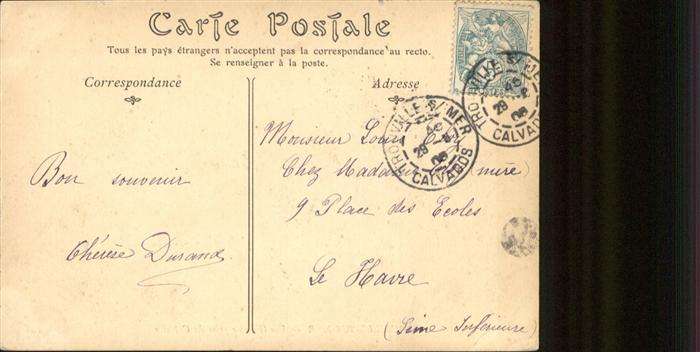 Carte Postale
Tous les pays étrangers n'acceptent pas la correspondance au recto.
Se renseigner à la poste.
Correspondance
Adresse
Bon souvenir
Thérèse Durand
Monsieur Louis
Chez Madame (mère)
9 Place des Ecoles
Le Havre
(Seine Inférieure)
TROUVILLE S/ MER
CALVADOS
TROUVILLE S/ MER
CALVADOS